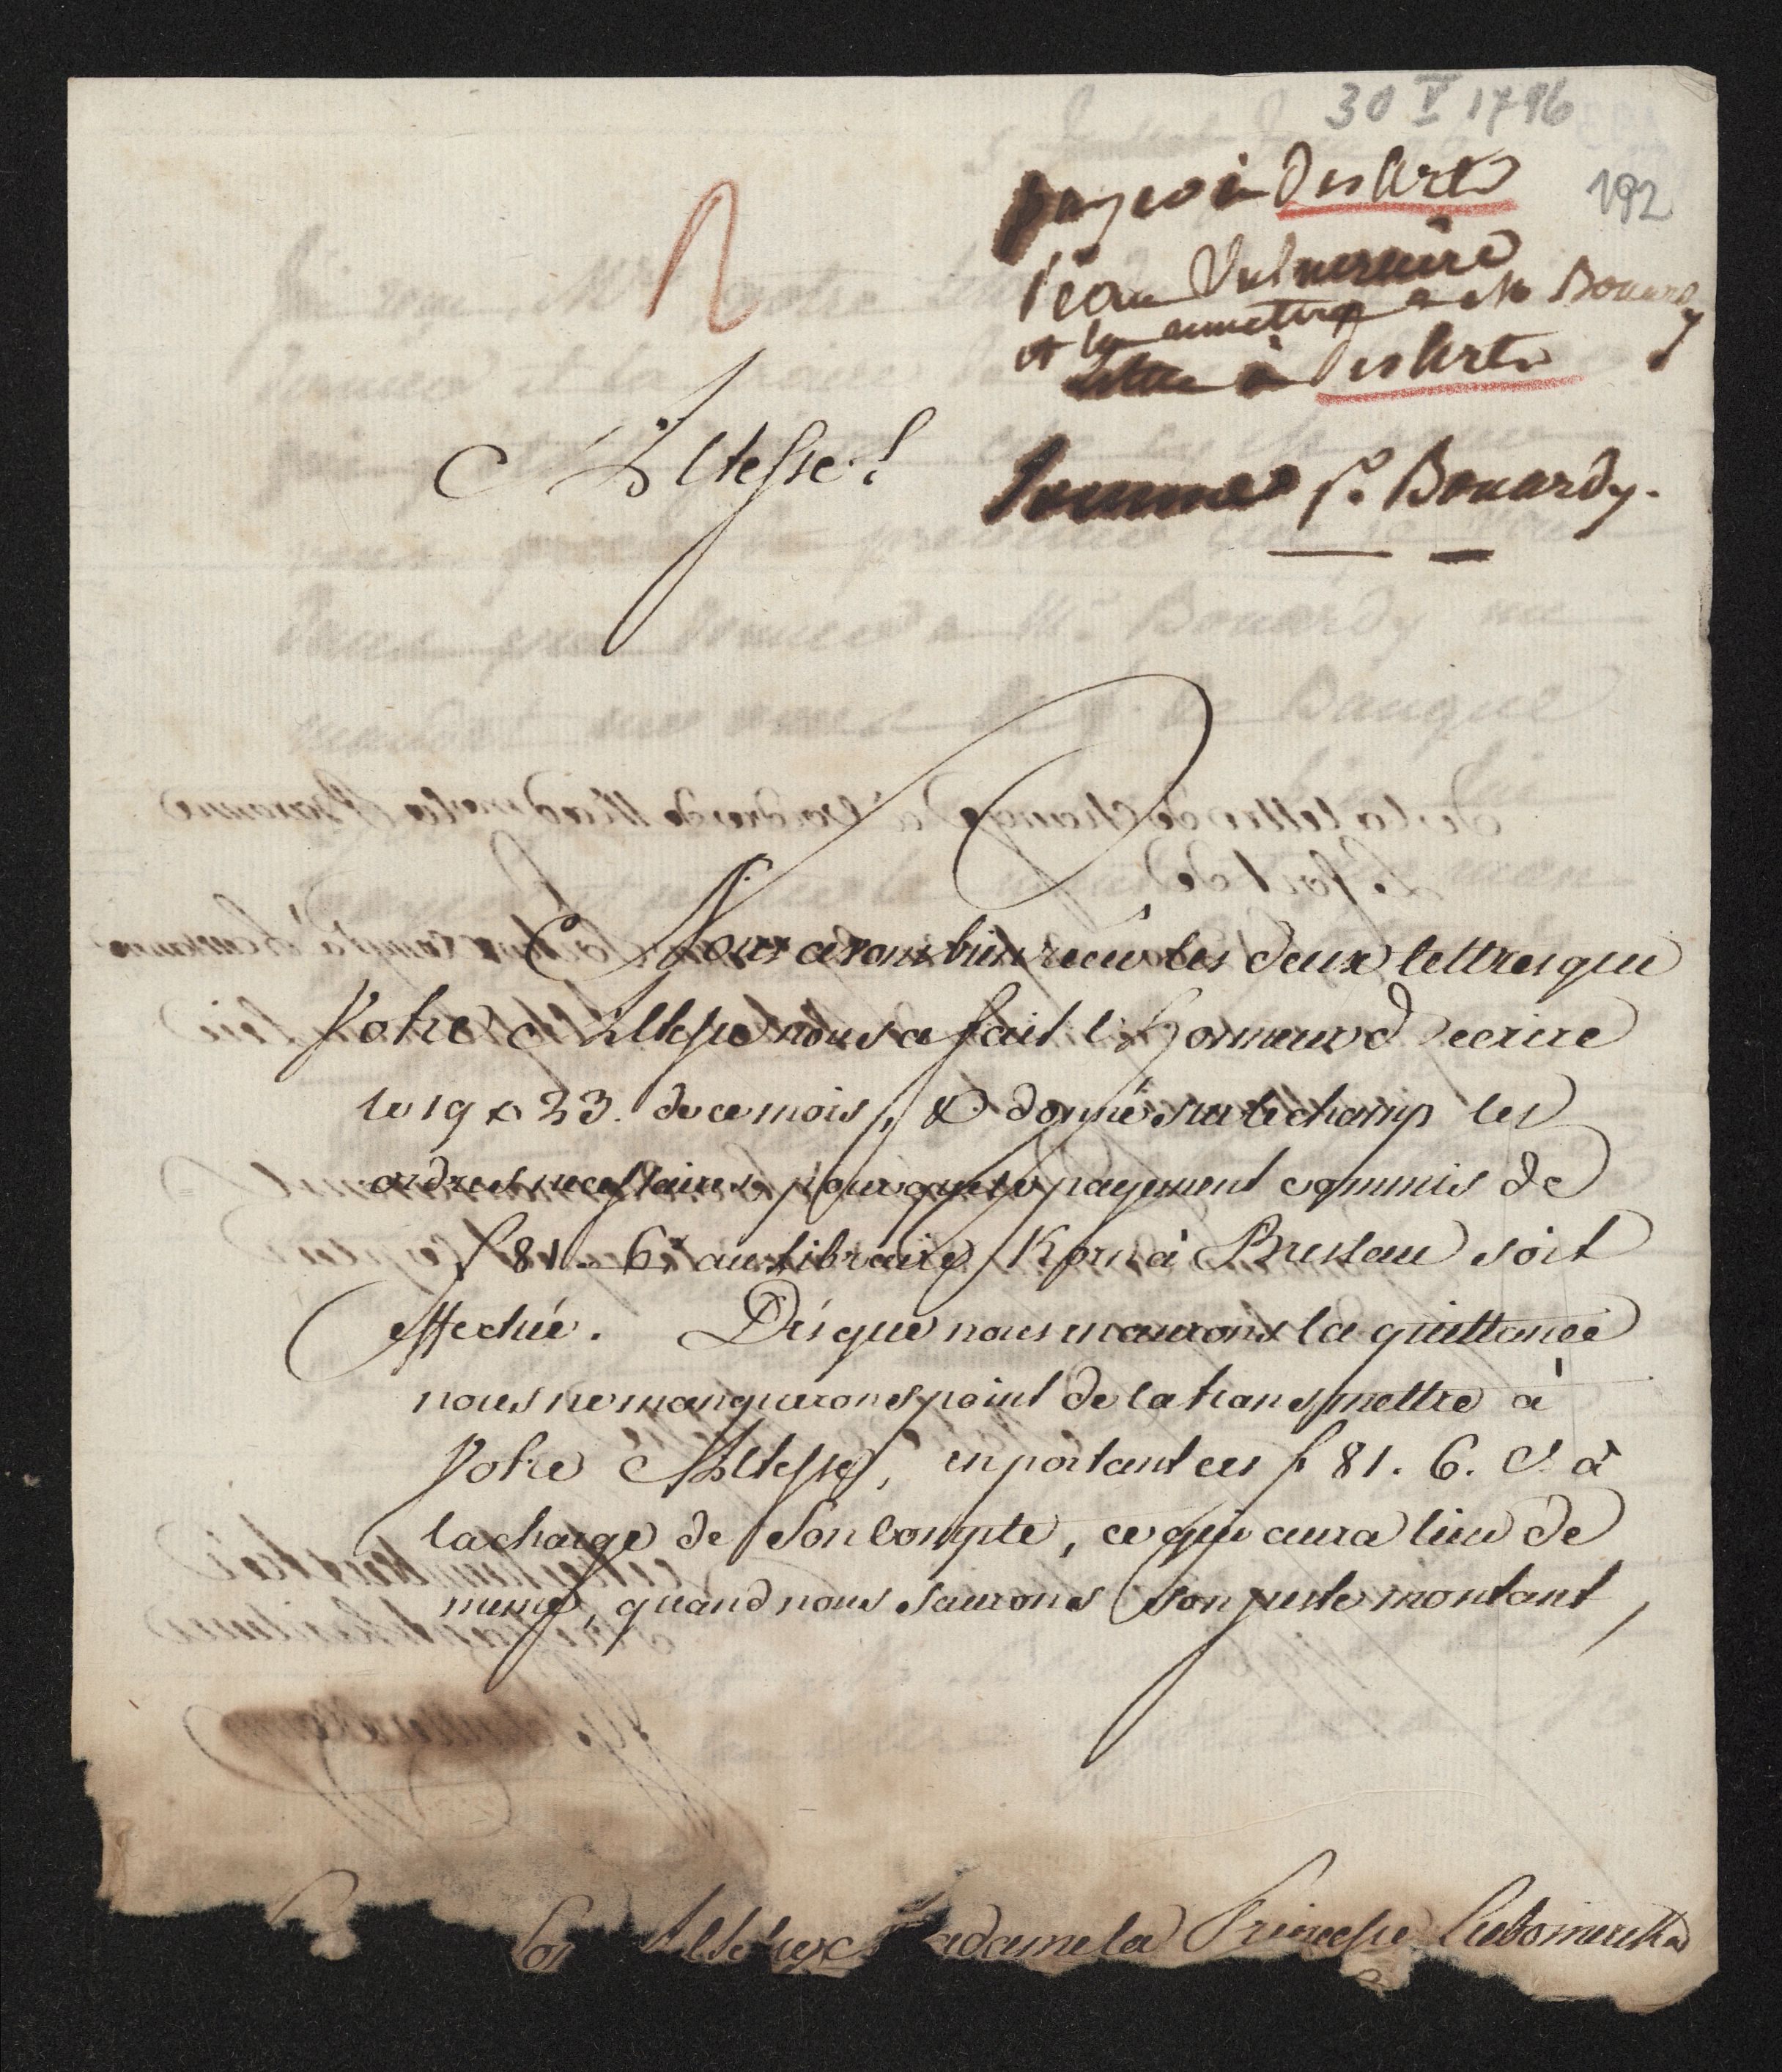 30 V 1796
192
payer à Des Arts
l'eau Vulneraire
et la remettre a Mr Bouardy
lettre à Des Arts
Sommes pr. Bouardy.
Altesse!
Nous avons bien recu les deux lettres que
Votre Altesse nous a fait l'Honneur d'ecrire
le 19 & 23. de ce mois, & donné sur le champ les
ordres necessaires, pour que le payement commis de
f 81. 6. au libraire Korn à Breslau soit
effectué. Dès que nous en aurons la quittance
nous ne manquerons point de la transmettre à
Votre Altesse, en portant ces f 81. 6. S. à
la charge de Son Compte, ce qui aura lieu de
meme, quand nous saurons son juste montant,
Altesse Madame la Princesse Lubomirska